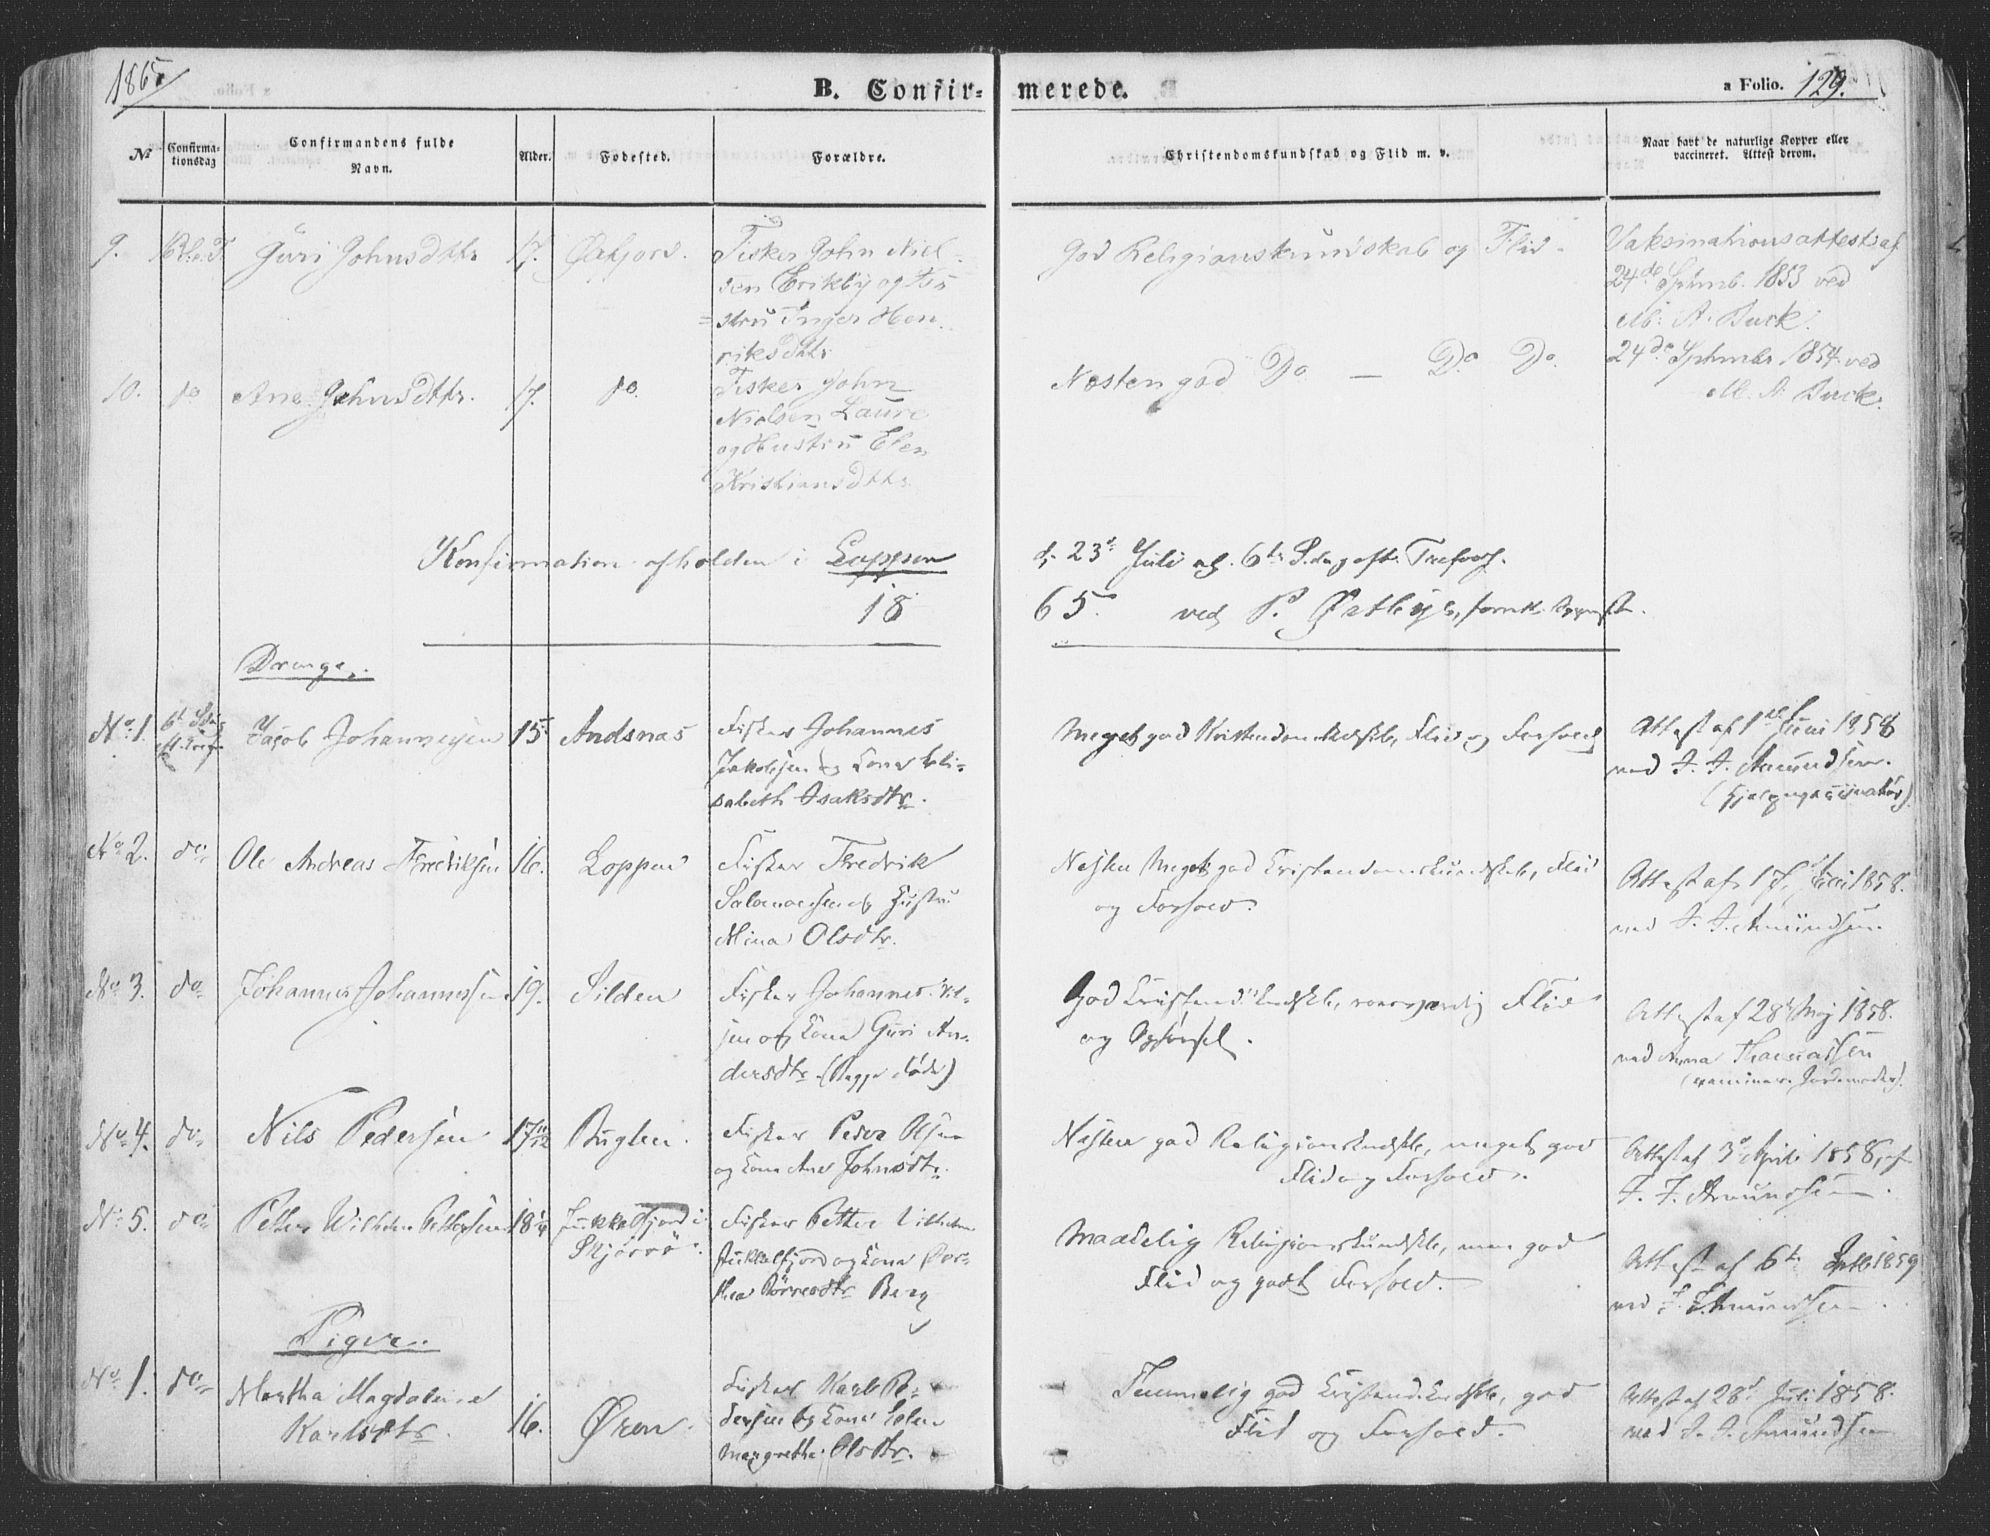 1865
B. Confir-
merede.
a Folio. 129.
No
Confirma-
tionsdag
Confirmandens fulde
Navn.
Alder.
Fødested.
Forældre.
Christendomskundskab og Flid m. v.
Naar havt de naturlige Kopper eller
vaccineret. Attest derom.
9.
Guri Johnsdttr
17.
Øxfjord.
Fisker John Niel-
sen Erikby og Hu-
=stru Inger Hen-
riksdttr
God Religionskundskab og Flid.
Vaksinationsattest af
24de Septmb. 1853 ved
M. A. Buck.
10.
do
Ane Johnsdttr.
17.
do.
Fisker John
Nielsen Laure
og Hustru Elen
Kristiansdttr.
Næsten god Do — Do Do.
24de Septmbr 1854 ved
M. A. Buck.
Konfirmation afholden i Loppen
d. 23de Juli 6te S.dag eft. Trefold.
18
65. ved P. Østbye,
Drenge.
No 1.
6te Sdag
eft. Tref.
Jacob Johannesen
15
Andsnæs
Fisker Johannes
Jakobsen og Kone Eli-
sabeth Isaksdtr.
Meget god Kristendomskdskb, Flid og Forhold
Attest af 1ste Juni 1858
ved J. J. Amundsen.
(Hjelpevaccinatør)
No 2.
do
Ole Andreas Fredriksen
16.
Loppen
Fisker Fredrik
Salamonsen og Hustru
Mina Olsdtr.
Næsten Meget god Kristendomskundskb, Flid
og Forhold.
Attest af 17 Juni 1858.
ved J. J. Amundsen.
No 3.
do
Johannes Johannessen
19.
Silden
Fisker Johannes Nil-
sen og Kone Guri An-
dersdtr. (Begge døde)
God Kristend.kndskb, roesværdig Flid
og Opførsel.
Attest af 28de Maj 1858.
ved Anna Thomassen
(examiner. Jordemoder).
No 4.
do
Nils Pedersen
17 11/12
Buglen.
Fisker Peder Olsen
og Kone Ane Johnsdtr.
Næsten god Religionskndskb, meget god
Flid og Forhold.
Attest af 3de April 1858, af
J. J. Amundsen.
No 5.
do
Petter Wilhelm Pettersen
18 1/4
Jøkkelfjord i
Skjervø.
Fisker Petter Vilhelm
Jøkkelfjord og Kone Dor-
thea Børresdtr Berg
Maadelig Religionskundskb, men god
Flid og godt Forhold.
Attest af 6te 1859
ved J. J. Amundsen.
Piger.
No 1.
do
Martha Magdalena
Karlsdtr.
16.
Øren.
Fisker Karl Pe-
dersen og Kone Elen
Margretha Olsdtr.
Temmelig god Kristend.kndskb, god
Flid og Forhold.
Attest af 28de Juli 1858.
ved J. J. Amundsen